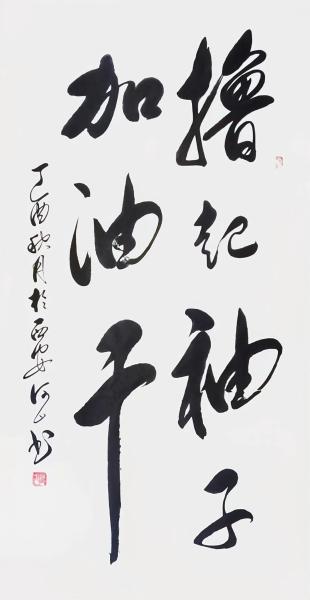 撸起袖子
加油干
丁酉秋月于西安河山书